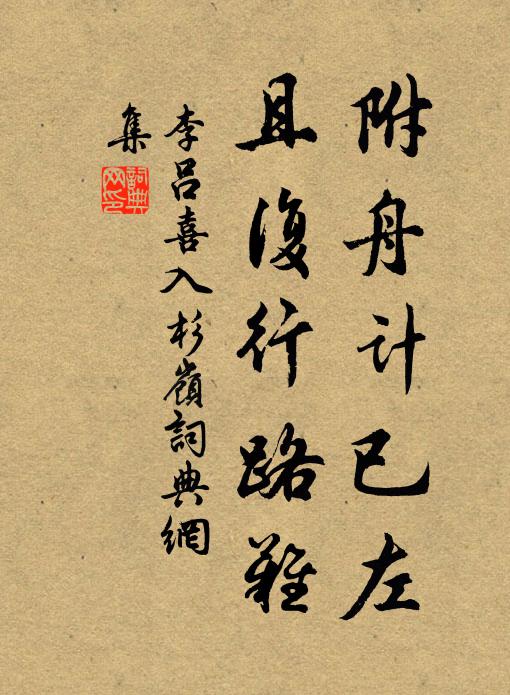 附舟計已左
且復行路難
李呂喜入杉嶺詞典網
集
詞典
网印